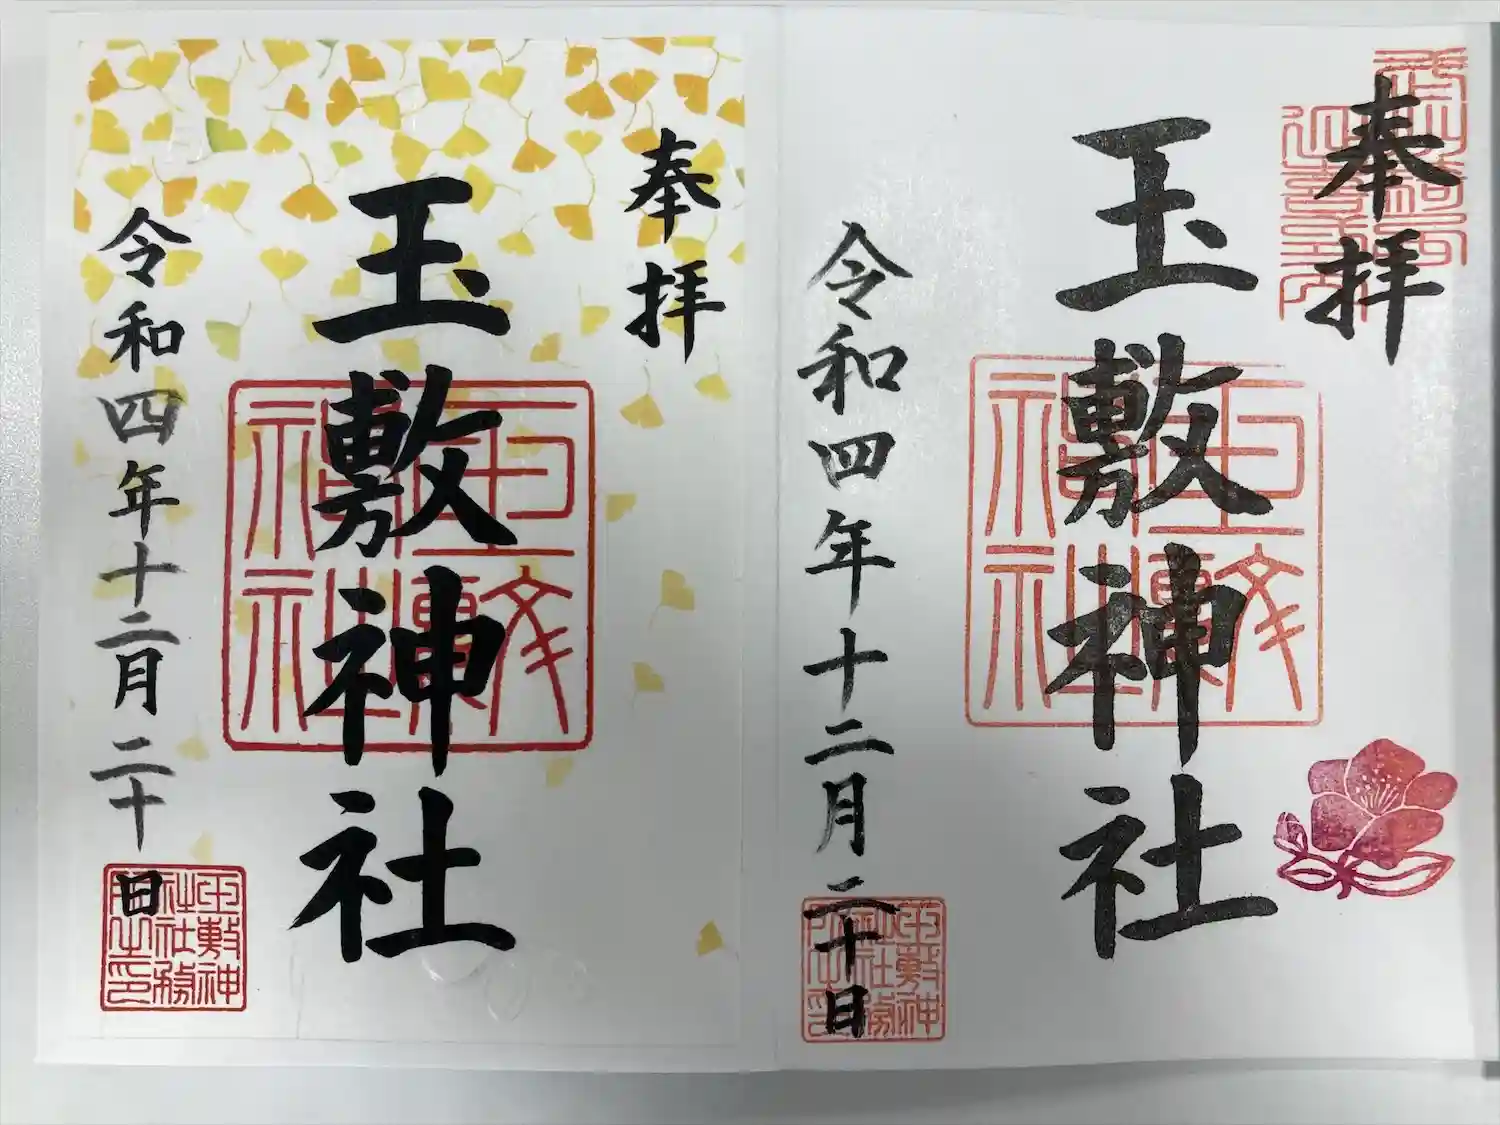 奉拝
玉敷神社
令和四年十二月二十日
玉敷神社社務所之印
奉拝
玉敷神社
令和四年十二月二十日
玉敷神社社務所之印